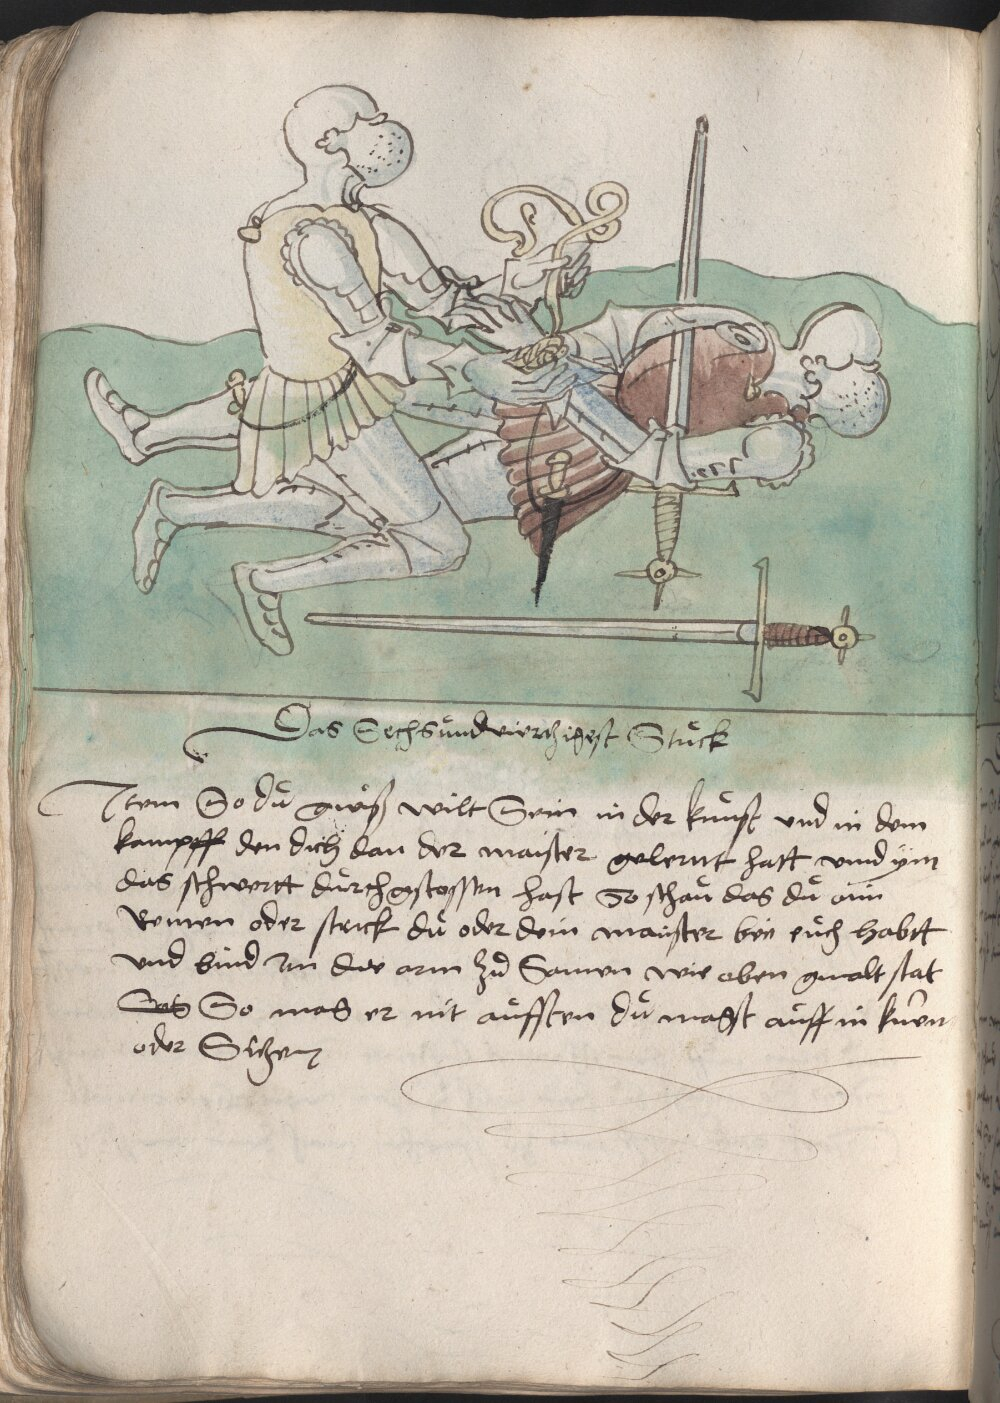 Das Sechsundvierczigest Stuck
Item So du gwyß wilt Sein in der kunst vnd in dem
kampff den dich dan der maister gelernt hatt vnnd ym
das schwertt durchgstossen hast So schau das du ain
Remen oder strick du oder dein maister bei euch habtt
vnd bind Im die arm zu Samen wie oben gmalt stat
So mag er nit auffsten du magst auff in knien
oder Siczen